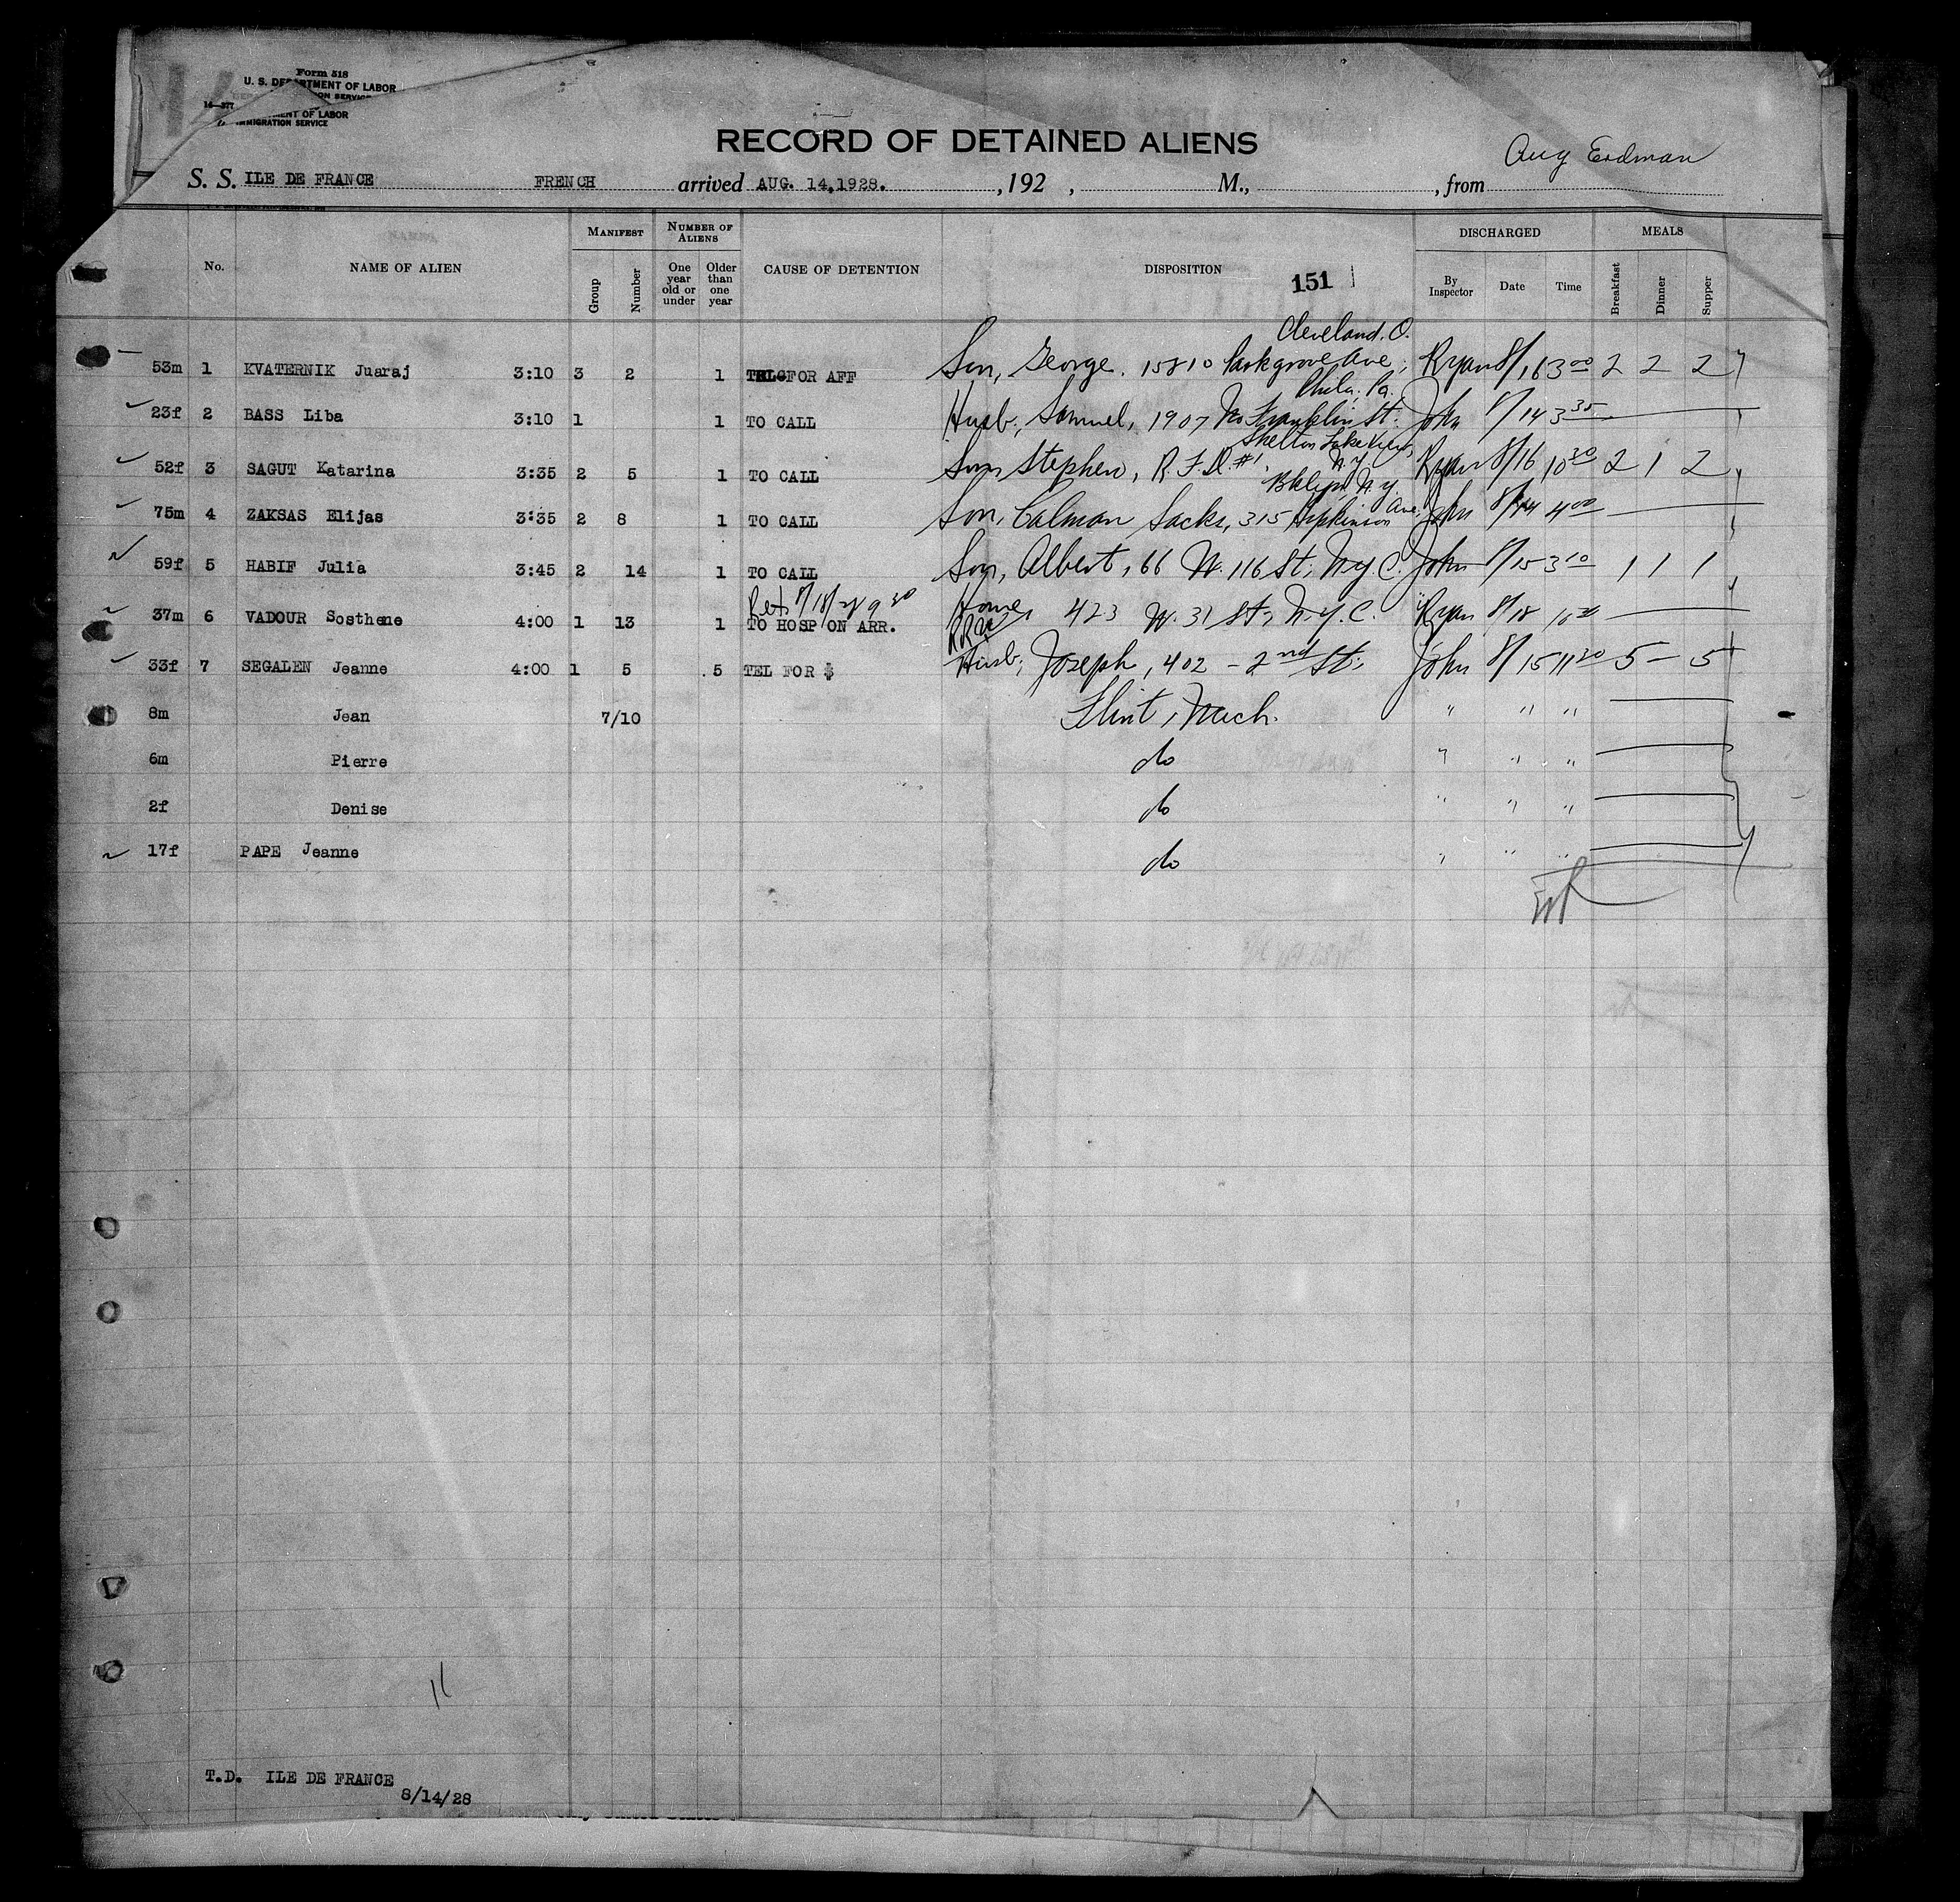 Form 518
U. S. DEPARTMENT OF LABOR
ION SERVICE
14—377
MENT OF LABOR
IMMIGRATION SERVICE
RECORD OF DETAINED ALIENS
Aug Erdman
S. S. ILE DE FRANCE FRENCH arrived AUG. 14,1928. , 192 , M., , from
No. NAME OF ALIEN MANIFEST Group Number NUMBER OF ALIENS One year old or under Older than one year CAUSE OF DETENTION DISPOSITION 151 DISCHARGED By Inspector Date Time MEALS Breakfast Dinner Supper
Cleveland. O.
53m 1 KVATERNIK Juaraj 3:10 3 2 1 FOR AFF Son, George. 15810 Parkgrove Ave; Ryan 8/16 3 00 2 2 2
Phila. Pa.
23f 2 BASS Liba 3:10 1 1 TO CALL Husb; Samuel, 1907 No Franklin St. John 8/14 3 35
Shelton Lake View,
N.Y.
52f 3 SAGUT Katarina 3:35 2 5 1 TO CALL Son Stephen, R.F.D. #1. Ryan 8/16 10 30 2 1 2
Bklyn, N.Y.
75m 4 ZAKSAS Elijas 3:35 2 8 1 TO CALL Son, Calman Sacks, 315 Hopkinson Ave; John 8/14 4 00
59f 5 HABIF Julia 3:45 2 14 1 TO CALL Son, Albert, 66 W. 116 St; N.Y.C. John 8/15 3 10 1 1 1
Ret 8/18/28 9 30
37m 6 VADOUR Sosthene 4:00 1 13 1 TO HOSP ON ARR. Home, 423 W. 31 St; N.Y.C. Ryan 8/18 10 30
33f 7 SEGALEN Jeanne 4:00 1 5 5 TEL FOR $ Husb; Joseph, 402 - 2nd St; John 8/15 11 30 5 — 5
8m Jean 7/10 Flint, Mich. " " "
6m Pierre do " " "
2f Denise do " " "
17f PAPE Jeanne do " " "
11
T.D. ILE DE FRANCE
8/14/28